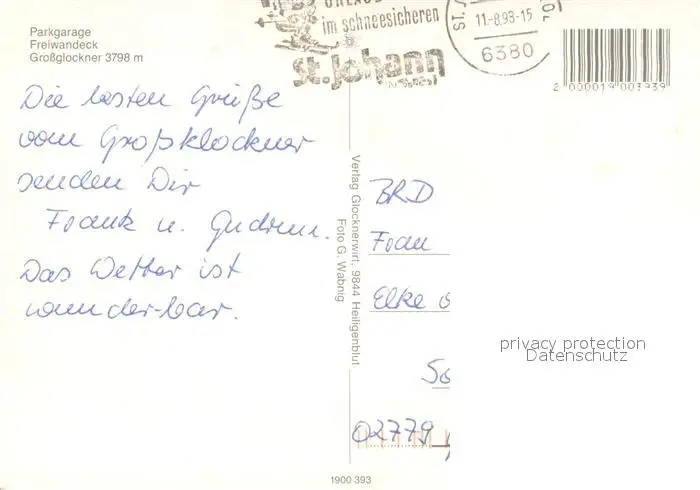 Parkgarage
Freiwandeck
Großglockner 3798 m
im schneesicheren
St. Johann
11-8.98-15
6380
2 000019 003939
Die besten Grüße
vom Großklockner
senden Dir
Frank u. Gudrun.
Das Wetter ist
wunder-bar.
Verlag Glocknerwirt, 9844 Heiligenblut
Foto G. Wabnig
BRD
Frau
Elke
02779
privacy protection
Datenschutz
1900 393